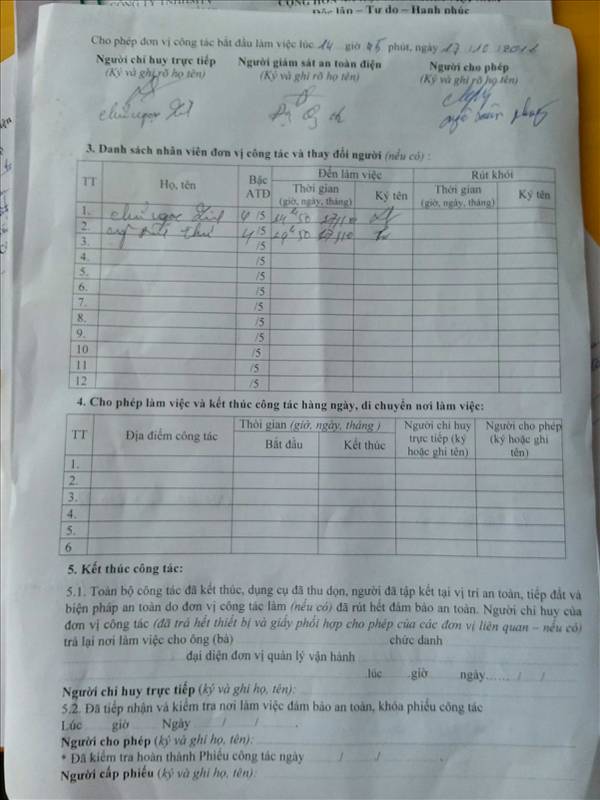 Độc lập – Tự do – Hạnh phúc
Cho phép đơn vị công tác bắt đầu làm việc lúc 14 giờ 45 phút, ngày 17/10/201
Người chỉ huy trực tiếp Người giám sát an toàn điện Người cho phép
(Ký và ghi rõ họ tên) (Ký và ghi rõ họ tên) (Ký và ghi rõ họ tên)
3. Danh sách nhân viên đơn vị công tác và thay đổi người (nếu có) :
TT Họ, tên Bậc ATĐ Đến làm việc Rút khỏi
Thời gian (giờ, ngày, tháng) Ký tên Thời gian (giờ, ngày, tháng) Ký tên
1. chử ngọc 4/5 14 50 17/10
2. 4/5 14 50 17/10
3. /5
4. /5
5. /5
6. /5
7. /5
8. /5
9. /5
10 /5
11 /5
12 /5
4. Cho phép làm việc và kết thúc công tác hàng ngày, di chuyển nơi làm việc:
TT Địa điểm công tác Thời gian (giờ, ngày, tháng ) Người chỉ huy trực tiếp (ký hoặc ghi tên) Người cho phép (ký hoặc ghi tên)
Bắt đầu Kết thúc
1.
2.
3.
4.
5.
6
5. Kết thúc công tác:
5.1. Toàn bộ công tác đã kết thúc, dụng cụ đã thu dọn, người đã tập kết tại vị trí an toàn, tiếp đất và
biện pháp an toàn do đơn vị công tác làm (nếu có) đã rút hết đảm bảo an toàn. Người chỉ huy của
đơn vị công tác (đã trả hết thiết bị và giấy phối hợp cho phép của các đơn vị liên quan – nếu có)
trả lại nơi làm việc cho ông (bà) chức danh
đại diện đơn vị quản lý vận hành
lúc giờ ngày...... / /
Người chỉ huy trực tiếp (ký và ghi họ, tên):
5.2. Đã tiếp nhận và kiểm tra nơi làm việc đảm bảo an toàn, khóa phiếu công tác
Lúc giờ Ngày / /
Người cho phép (ký và ghi họ, tên):
* Đã kiểm tra hoàn thành Phiếu công tác ngày / /
Người cấp phiếu (ký và ghi họ, tên):